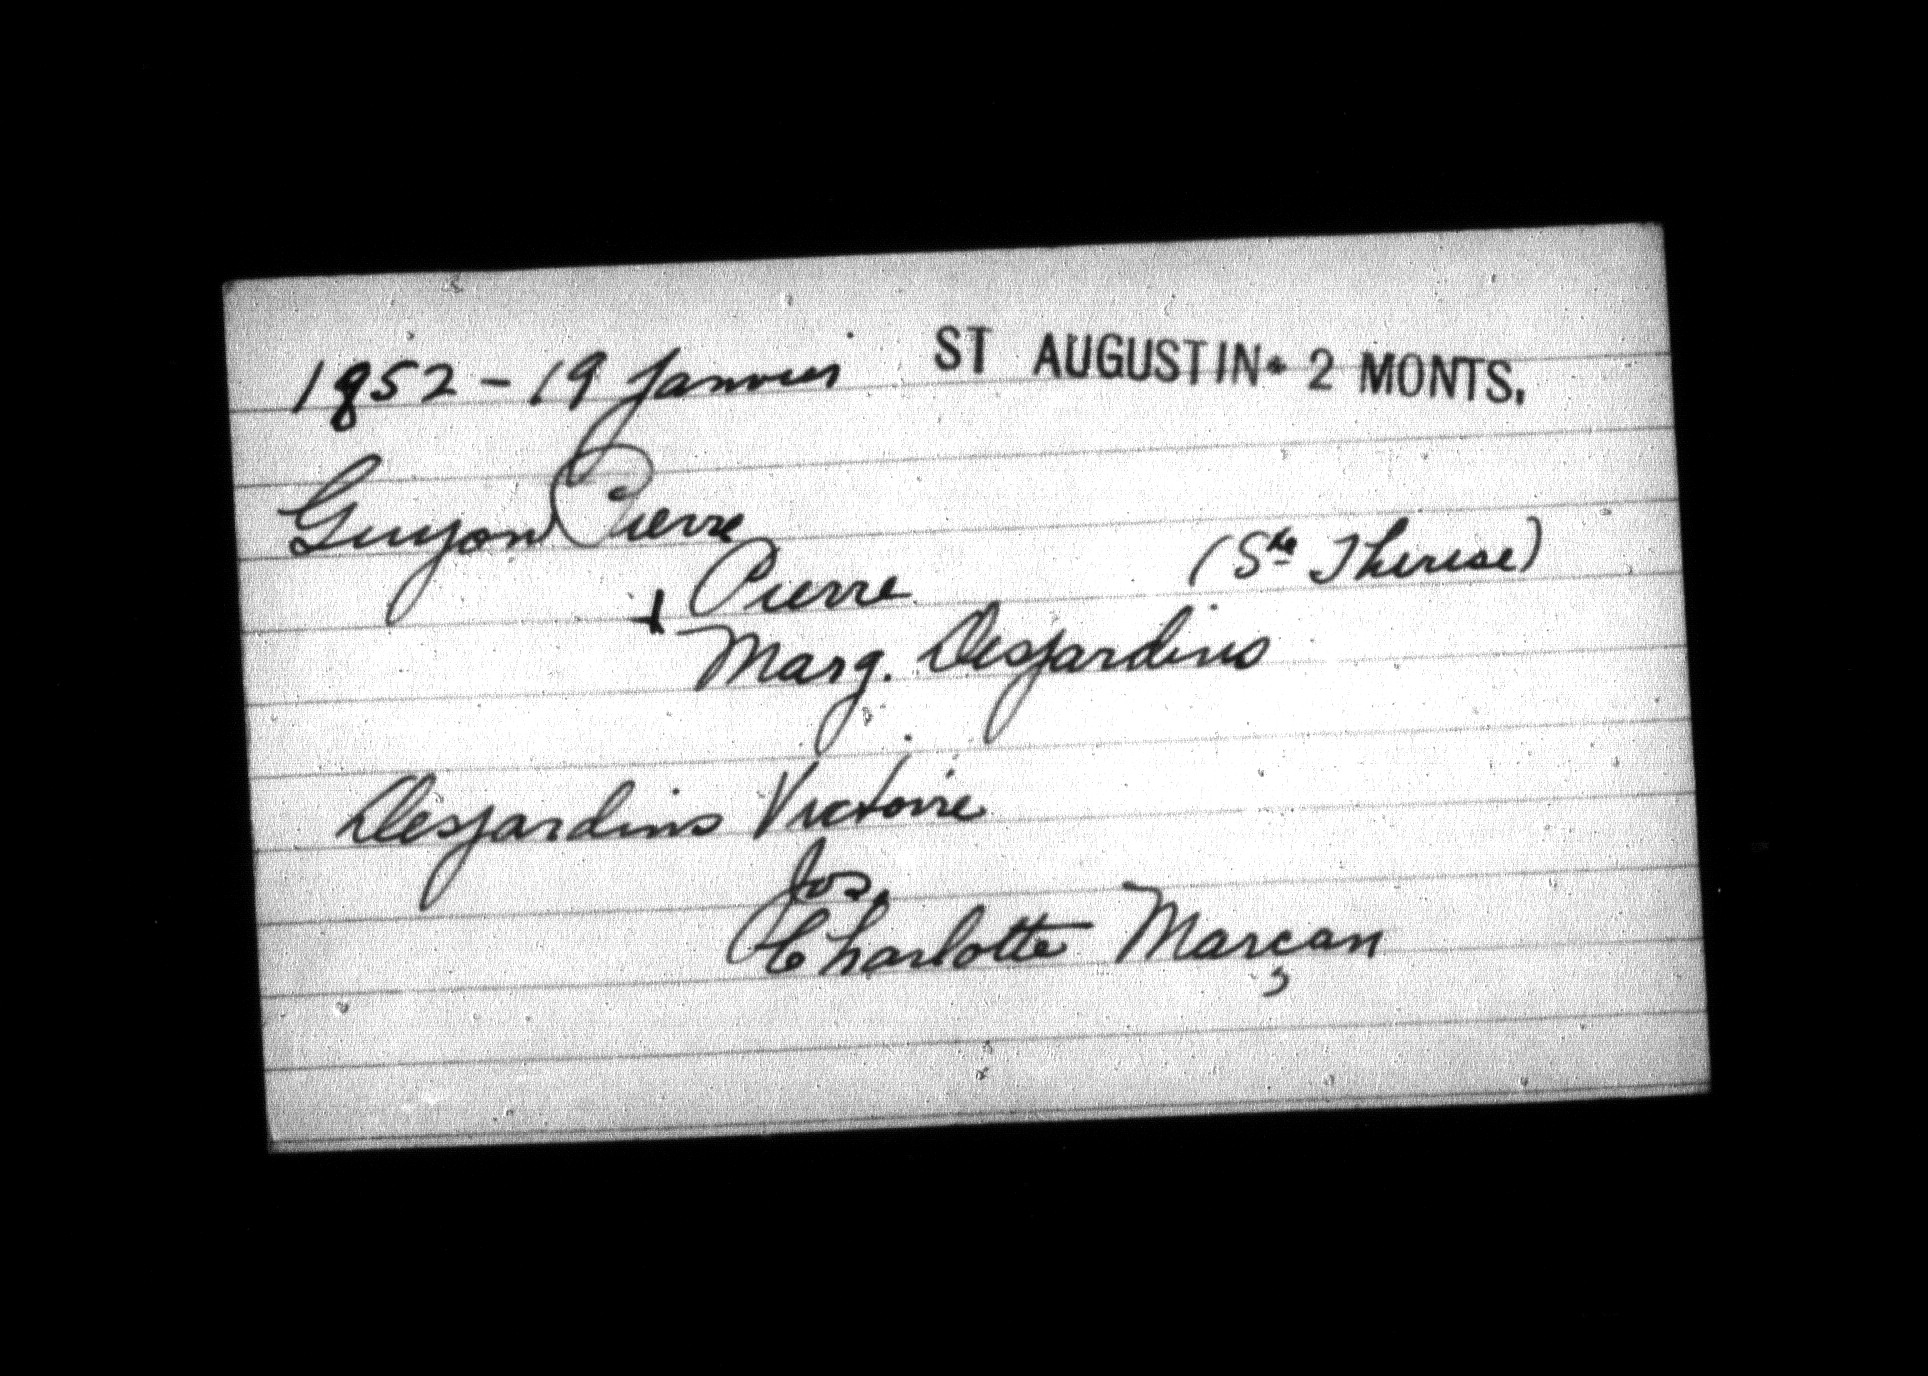 1852 - 19 Janvier ST AUGUSTIN - 2 MONTS.
Guyon Pierre
Pierre (Ste Therese)
+ Marg. Desjardins
Desjardins Victoire
Jos.
Charlotte Marçan